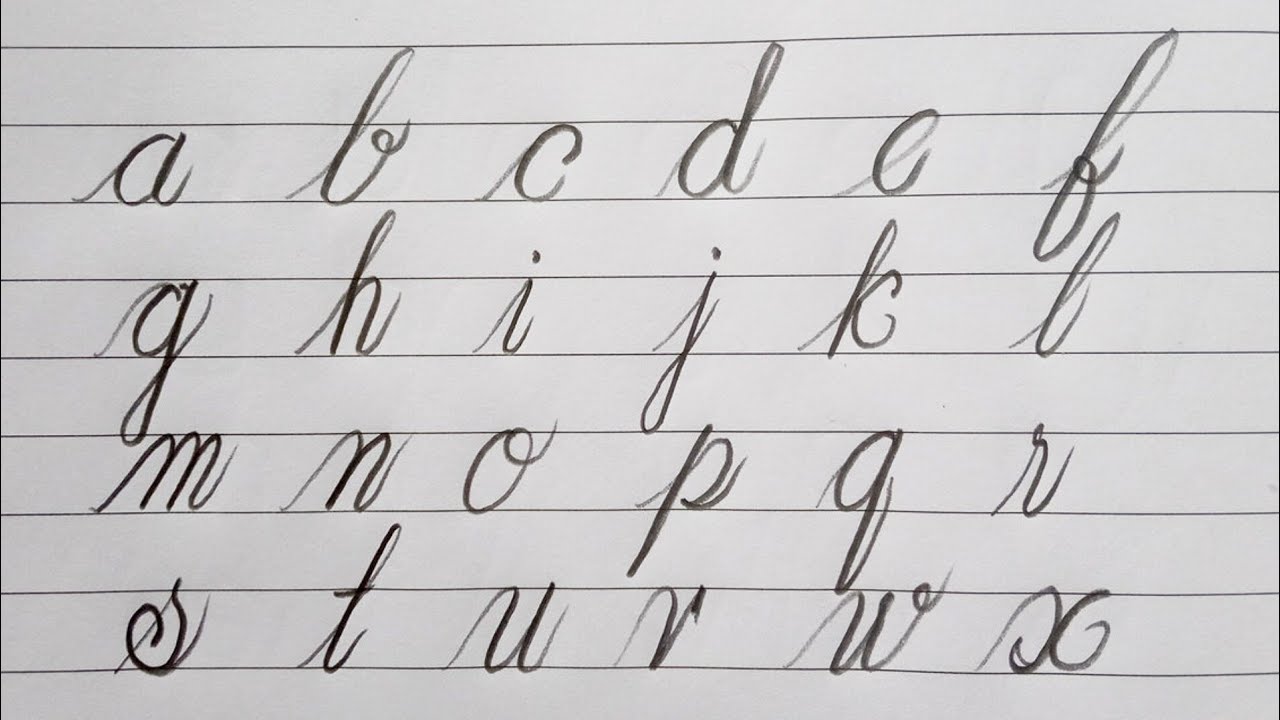 a b c d e f
g h i j k l
m n o p q r
s t u v w x